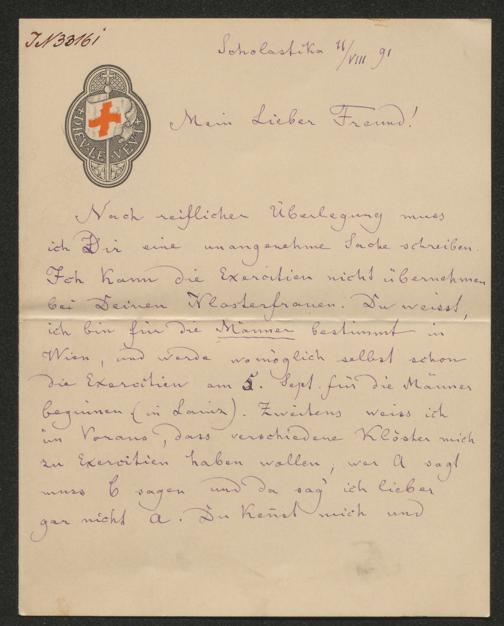 IN 33161
Scholastika 11/VIII 91
DIEV LE VEVT
Mein Lieber Freund!
Nach reiflicher Überlegung mues
ich Dir eine unangenehme Sache schreiben.
Ich kann die Exercitien nicht übernehmen
bei Deinen Klosterfrauen. Du weisst,
ich bin für die Männer bestimmt in
Wien, und werde womöglich selbst schon
die Exercitien am 5. Sept. für die Männer
beginnen (in Lainz). Zweitens weiss ich
im Voraus, dass verschiedene Klöster mich
zu Exercitien haben wollen, wer A sagt
muss B sagen und da sag' ich lieber
gar nicht A. Du kenst mich und